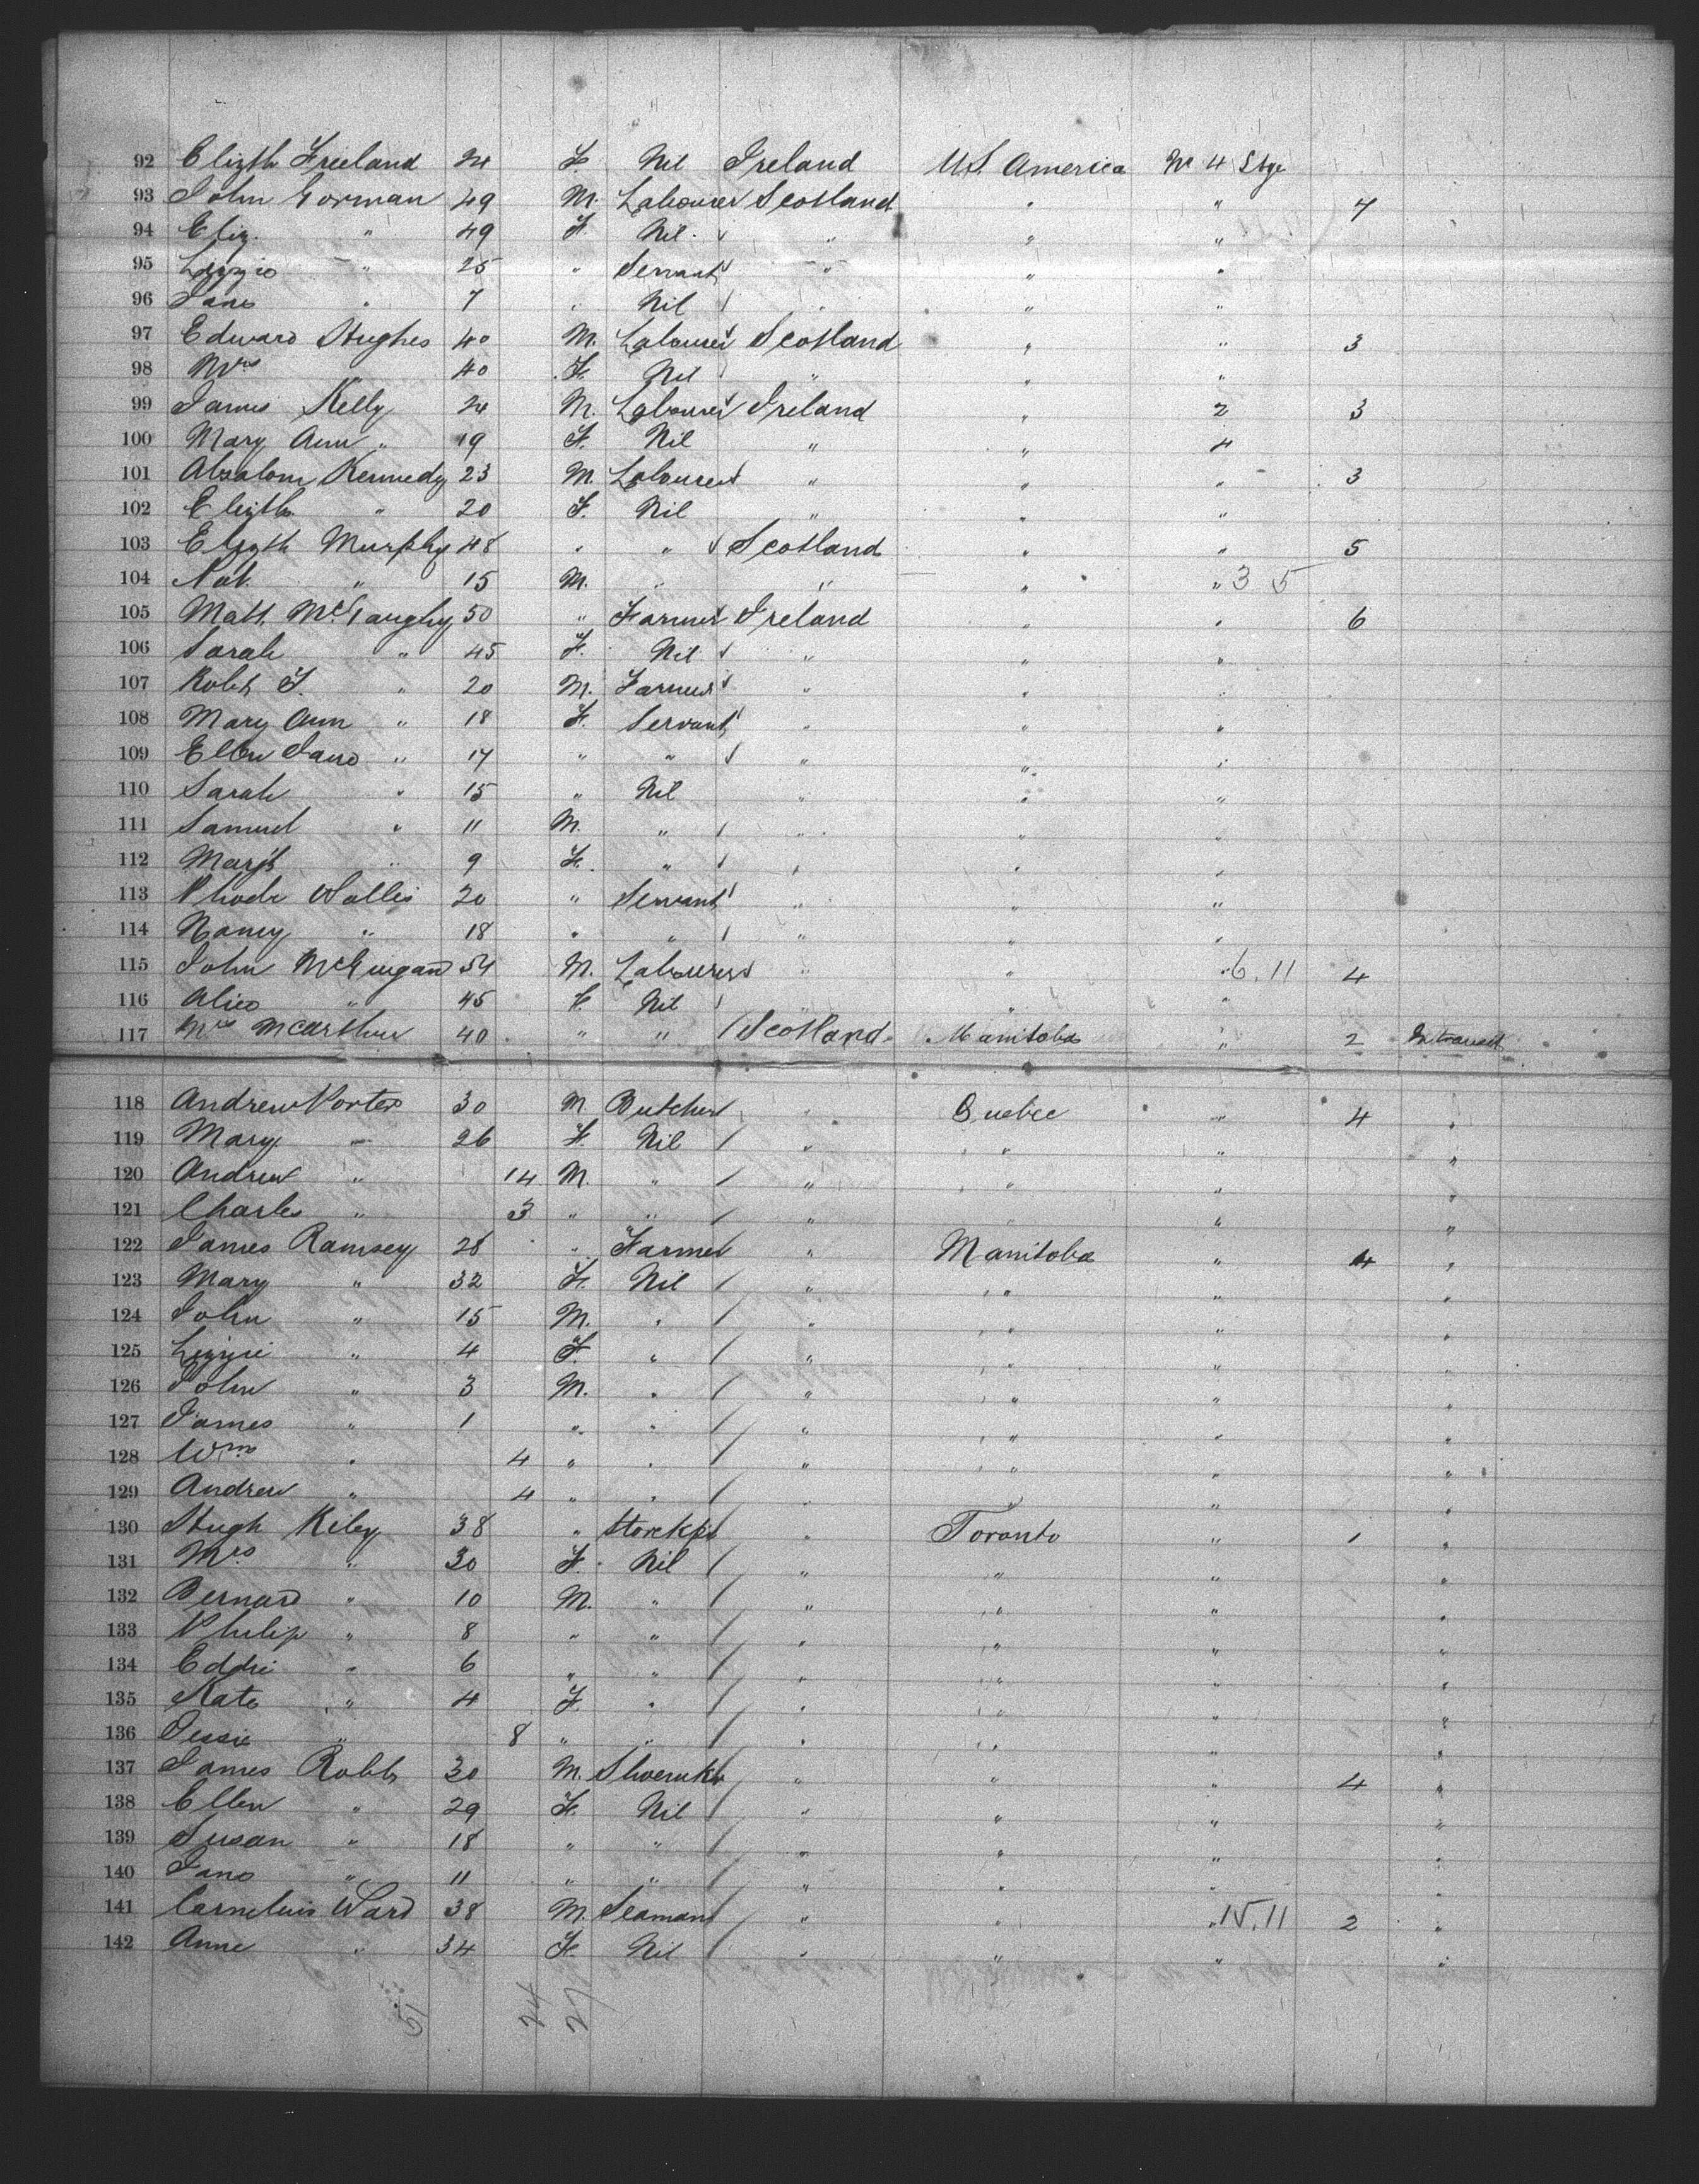 92 Elizth Freeland 24 F. Nil Ireland U.S. America No 4 Stge
93 John Gorman 49 M. Labourer Scotland " " 7
94 Eliz. " 49 F. Nil " " "
95 Lizzie " 25 " Servant " " "
96 Jane " 7 " Nil " " "
97 Edward Hughes 40 M. Labourer Scotland " " 3
98 Mrs 40 F. Nil " " "
99 James Kelly 24 M. Labourer Ireland " 2 3
100 Mary Ann " 19 F. Nil " " 4
101 Absalom Kennedy 23 M. Labourer " " " 3
102 Elizth " 20 F. Nil " " "
103 Elizth Murphy 48 " " Scotland " " 5
104 Nat. " 15 M. " " " " 3 5
105 Matt. McGaughy 50 " Farmer Ireland " " 6
106 Sarah " 45 F. Nil " " "
107 Robt J. " 20 M. Farmer " " "
108 Mary Ann " 18 F. Servant " " "
109 Ellen Jane " 17 " " " " "
110 Sarah " 15 " Nil " " "
111 Samuel " 11 M. " " " "
112 Margt " 9 F. " " " "
113 Rhode Wallis 20 " Servant " " "
114 Nancy " 18 " " " " "
115 John McGuigan 54 M. Labourer " " " 6.11 4
116 Alice " 45 F. Nil " " "
117 Mrs McArthur 40 " " Scotland Manitoba " 2 In transit
118 Andrew Porter 30 M Butcher " Quebec " 4 "
119 Mary " 26 F. Nil " " " "
120 Andrew " 14 M. " " " " "
121 Charles " 3 " " " " "
122 James Ramsey 28 " Farmer " Manitoba " 4 "
123 Mary " 32 F. Nil " " " "
124 John " 15 M. " " " " "
125 Lizzie " 4 F. " " " " "
126 John " 3 M. " " " " "
127 James " 1 " " " " " "
128 Wm " 4 " " " " " "
129 Andrew " 4 " " " " " "
130 Hugh Kiley 38 " Storekpr " Toronto " 1 "
131 Mrs " 30 F. Nil " " " "
132 Bernard " 10 M. " " " " "
133 Philip " 8 " " " " " "
134 Eddie " 6 " " " " " "
135 Kate " 4 F. " " " " "
136 Jessie " 8 " " " " " "
137 James Robb 30 M. Shoemkr " " " 4 "
138 Ellen " 29 F. Nil " " " "
139 Susan " 18 " " " " " "
140 Jane " 11 " " " " " "
141 Cornelius Ward 38 M. Seaman " " " 15.11 2 "
142 Anne " 34 F. Nil " " " "
51 24 27